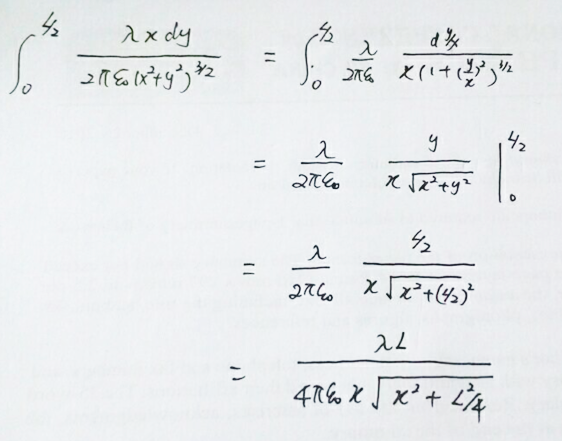 ∫₀^{L/2} λxdy / 2πε₀(x²+y²)^{3/2} = ∫₀^{L/2} λ/2πε₀ d y/x / x(1+(y/x)²)^{3/2}
= λ/2πε₀ y / x√(x²+y²) |₀^{L/2}
= λ/2πε₀ L/2 / x√(x²+(L/2)²)
= λL / 4πε₀x√(x²+L²/4)